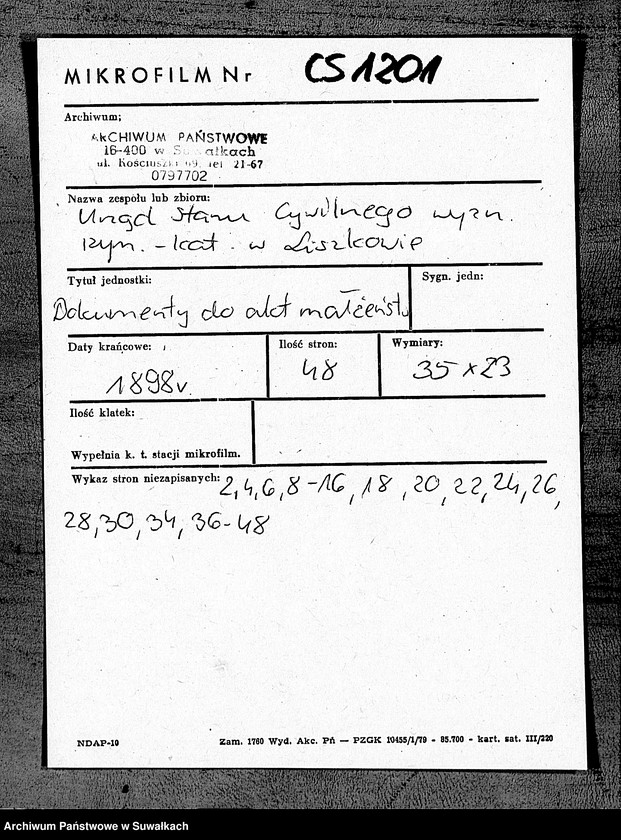 MIKROFILM Nr CS 1201
Archiwum;
ARCHIWUM PAŃSTWOWE
16-400 w Suwałkach
ul. Kościuszki 69, tel 21-67
0797702
Nazwa zespołu lub zbioru:
Urząd Stanu Cywilnego wyzn.
rzym. - kat. w Liszkowie
Tytuł jednostki:
Sygn. jedn:
Dokumenty do akt małżeństw
Daty krańcowe:
Ilość stron:
Wymiary:
1898 r.
48
35 x 23
Ilość klatek:
Wypełnia k. t. stacji mikrofilm.
Wykaz stron niezapisanych: 2, 4, 6, 8-16, 18, 20, 22, 24, 26,
28, 30, 34, 36-48
NDAP-10
Zam. 1760 Wyd. Akc. Pń — PZGK 10455/1/79 - 85.700 - kart. sat. III/220
Archiwum Państwowe w Suwałkach